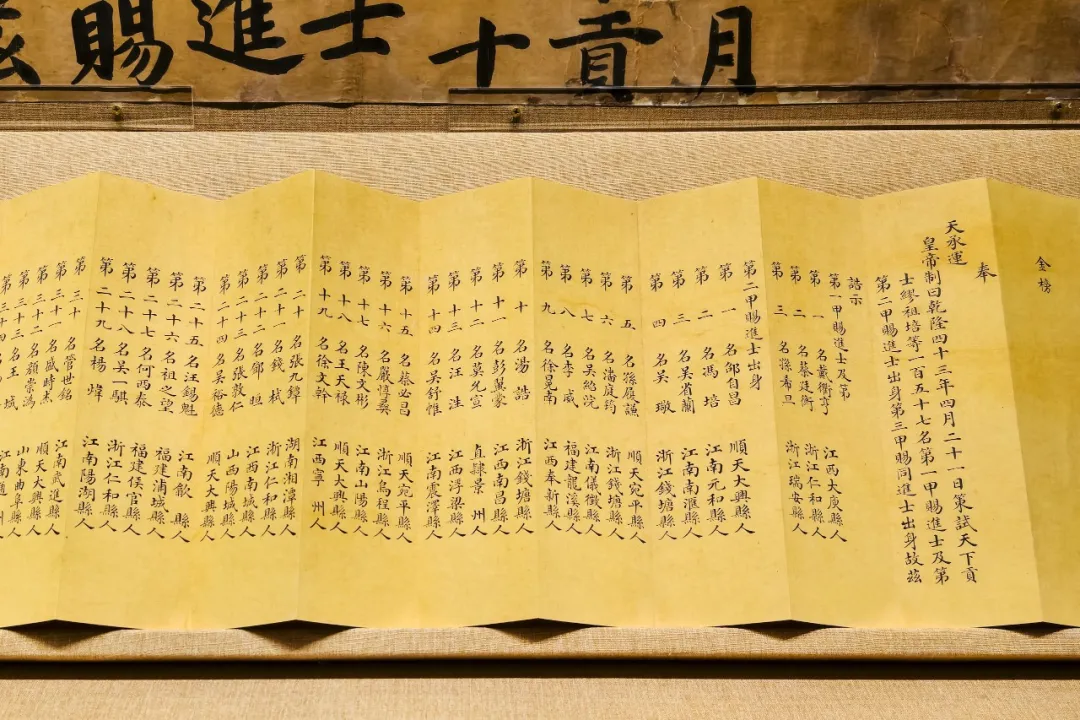 月
貢
十
士
進
賜
茲
金榜
奉
天承運
皇帝制曰乾隆四十三年四月二十一日策試天下貢
士繆祖培等一百五十七名第一甲賜進士及第
第二甲賜進士出身第三甲賜同進士出身故茲
誥示
第一甲賜進士及第
第一名戴衢亨 江西大庾縣人
第二名蔡廷衡 浙江仁和縣人
第三名孫希旦 浙江瑞安縣人
第二甲賜進士出身
第一名邹自昌 順天大興縣人
第二名馮培 江南元和縣人
第三名吳省蘭 江南南滙縣人
第四名吳璥 浙江錢塘縣人
第五名孫履謙 順天宛平縣人
第六名潘庭筠 浙江錢塘縣人
第七名吳紹浣 江南儀徵縣人
第八名李威 福建龍溪縣人
第九名徐南 江西奉新縣人
第十名湯誥 浙江錢塘縣人
第十一名彭翼蒙 江西南昌縣人
第十二名莫允宣 直隸景州人
第十三名汪 江西浮梁縣人
第十四名吳舒惟 江南震澤縣人
第十五名蔡必昌 順天宛平縣人
第十六名嚴慎 浙江烏程縣人
第十七名陳文彬 江南山陽縣人
第十八名王天禄 順天大興縣人
第十九名徐文幹 江西寧州人
第二十名張九鐔 湖南湘潭縣人
第二十一名錢栻 浙江仁和縣人
第二十二名 江西南城縣人
第二十三名張敦仁 山西陽城縣人
第二十四名吳裕德 順天大興縣人
第二十五名汪錫魁 江南歙縣人
第二十六名祖之望 福建浦城縣人
第二十七名何西泰 福建侯官縣人
第二十八名吳一騏 浙江仁和縣人
第二十九名楊煒 江南陽湖縣人
第三十名管世銘 江南武進縣人
第三十一名盛時杰 順天大興縣人
第三十二名顏崇溈 山東曲阜縣人
第三十三名王城 江南縣人
第三十四名